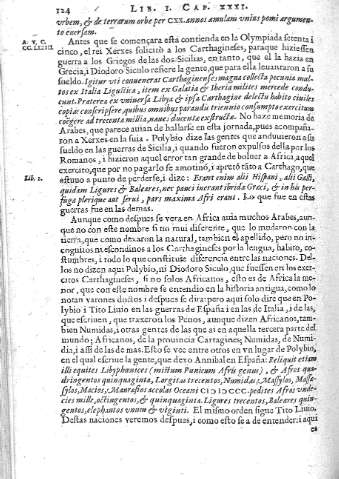 124 LIB. I. CAP. XXXI.
urbem, & de terrarum orbe per CXX. annos æmulam unius pomi argumento eversam.
A. V. C. CC.LXXIII.
Antes que se començara esta contienda en la Olympiada setenta i
cinco, el rei Xerxes solicitò a los Carthagineses, paraque hiziessen
guerra a los Griegos de las dos Sicilias, en tanto, que el la hazia en
Grecia, i Diodoro Siculo refiere la gente, que para ella levantaron a su
sueldo. Igitur uti convenerat Carthaginenses magna collecta pecunia multos ex Italia Ligustica, item ex Galatia & Iberia milites mercede conducunt.
Præterea ex universa Libya & ipsa Carthagine delectu habito civiles
copias conscripsere, quibus omnibus parandis triennio consumpto exercitum
cogere ad trecenta millia, naves ducenta exstructa. No haze memoria de
Arabes, que parece avian de hallarse en esta jornada, pues acompañaron a Xerxes en la suia. Polybio dize las gentes que anduvieron a su
sueldo en las guerras de Sicilia, i quando fueron expulsos della por los
Romanos, i hizieron aquel error tan grande de bolver a Africa, aquel
exercito, que por no pagarlo se amotinò, i apretò tãto a Carthago, que
Lib. 1.
estuvo a punto de perderse, i dize: Erant enim alii Hispani, alii Galli,
quidam Ligures & Baleares, nec pauci inerant ibrida Greci, & in his perfugæ plerique aut servi, pars maxima Afri erant. Lo que fue en estas
guerras fue en las demas.
Aunque como despues se vera en Africa avia muchos Arabes, aunque no con este nombre si no mui diferente, que lo mudaron con la
tierra, que como dexaron la natural, tambien el apellido, pero ningunos
los Carthagineses por la lengua, habito, costumbres, i todo lo que constituie diferencia entre las naciones. Dellos no dizen aqui Polybio, ni Diodoro Siculo, que fuessen en los exercitos Carthagineses, si no solos Africanos, esto es de Africa la menor, que con este nombre se entendio en la historia antigua, como lo
notan varones doctos i despues se dira: pero aqui solo dire que en Polybio i Tito Livio en las guerras de España i en las de Italia, i de las,
que escriven, que traxeron los Penos, aunque dizen Africanos, tambien Numidas, i otras gentes de las que ai en aquella tercera parte del
mundo; Africanos, de la provincia Cartagines; Numidas, de Numidia, i assi de las de mas. Esto se vee entre otros en un lugar de Polybio,
en el qual escrive la gente, que dexo Annibal en España: Reliquit etiam
illi equites Libyphœnices (mistum Punicum Afris genus), & Afros quadringentos quinquaginta, Largitas trecentos, Numidas, Massylos, Massæsylos, Macios, Maurusios accolas Oceani CIƆ IƆCCC. pedites Afros undecies mille, octingentos, & quinquaginta. Ligures trecentos, Baleares quingentos, elephantos unum & viginti. El mismo orden sigue Tito Livio.
Destas naciones veremos despues, i como esto se a de entender: i aqui